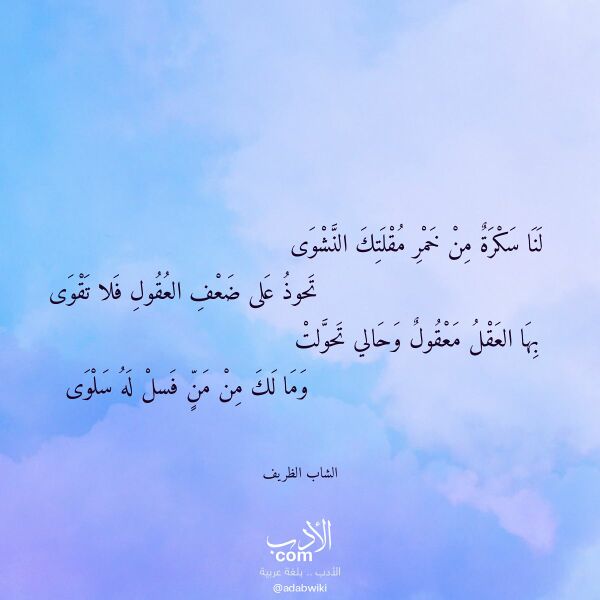 لَنَا سَكْرَةٌ مِنْ خَمْرِ مُقْلَتِكَ النَّشْوَى
تَحوذُ عَلى ضَعْفِ العُقُولِ فَلا تَقْوَى
بِهَا العَقْلُ مَعْقُولٌ وَحَالي تَحوَّلتْ
وَمَا لَكَ مِنْ مَنٍّ فَسلْ لَهُ سَلْوَى
الشاب الظريف
الأدب
com
الأدب .. بلغة عربية
@adabwiki